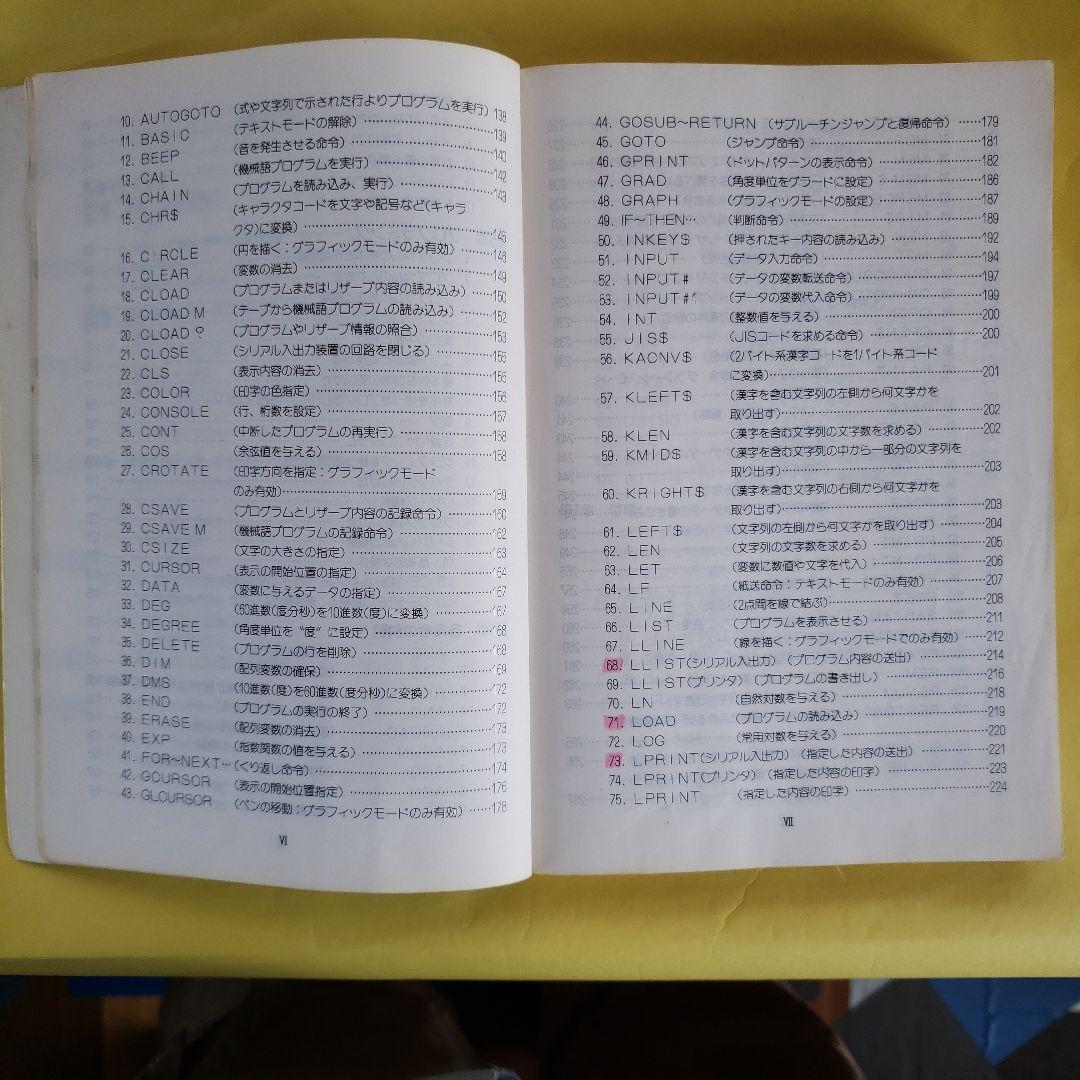 10. AUTOGOTO (式や文字列で示された行よりプログラムを実行) 138
11. BASIC (テキストモードの解除)……139
12. BEEP (音を発生させる命令)……140
13. CALL (機械語プログラムを実行)……142
14. CHAIN (プログラムを読み込み、実行)……143
15. CHR$ (キャラクタコードを文字や記号など(キャラ
クタ)に変換)……145
16. CIRCLE (円を描く:グラフィックモードのみ有効)……146
17. CLEAR (変数の消去)……149
18. CLOAD (プログラムまたはリザーブ内容の読み込み)……150
19. CLOAD M (テープから機械語プログラムの読み込み)……152
20. CLOAD ? (プログラムやリザーブ情報の照合)……153
21. CLOSE (シリアル入出力装置の回路を閉じる)……155
22. CLS (表示内容の消去)……155
23. COLOR (印字の色指定)……156
24. CONSOLE (行、桁数を設定)……157
25. CONT (中断したプログラムの再実行)……158
26. COS (余弦値を与える)……158
27. CROTATE (印字方向を指定:グラフィックモード
のみ有効)……159
28. CSAVE (プログラムとリザーブ内容の記録命令)……160
29. CSAVE M (機械語プログラムの記録命令)……162
30. CSIZE (文字の大きさの指定)……163
31. CURSOR (表示の開始位置の指定)……164
32. DATA (変数に与えるデータの指定)……167
33. DEG (60進数(度分秒)を10進数(度)に変換)……167
34. DEGREE (角度単位を"度"に設定)……168
35. DELETE (プログラムの行を削除)……168
36. DIM (配列変数の確保)……169
37. DMS (10進数(度)を60進数(度分秒)に変換)……172
38. END (プログラムの実行の終了)……172
39. ERASE (配列変数の消去)……173
40. EXP (指数関数の値を与える)……173
41. FOR~NEXT…(くり返し命令)……174
42. GCURSOR (表示の開始位置指定)……176
43. GLCURSOR (ペンの移動:グラフィックモードのみ有効)……178
VI
44. GOSUB~RETURN (サブルーチンジャンプと復帰命令)……179
45. GOTO (ジャンプ命令)……181
46. GPRINT (ドットパターンの表示命令)……182
47. GRAD (角度単位をグラードに設定)……186
48. GRAPH (グラフィックモードの設定)……187
49. IF~THEN… (判断命令)……189
50. INKEY$ (押されたキー内容の読み込み)……192
51. INPUT (データ入力命令)……194
52. INPUT# (データの変数転送命令)……197
53. INPUT#1 (データの変数代入命令)……199
54. INT (整数値を与える)……200
55. JIS$ (JISコードを求める命令)……200
56. KACNV$ (2バイト系漢字コードを1バイト系コード
に変換)……201
57. KLEFT$ (漢字を含む文字列の左側から何文字かを
取り出す)……202
58. KLEN (漢字を含む文字列の文字数を求める)……202
59. KMID$ (漢字を含む文字列の中から一部分の文字列を
取り出す)……203
60. KRIGHT$ (漢字を含む文字列の右側から何文字かを
取り出す)……203
61. LEFT$ (文字列の左側から何文字かを取り出す)……204
62. LEN (文字列の文字数を求める)……205
63. LET (変数に数値や文字を代入)……206
64. LF (紙送命令:テキストモードのみ有効)……207
65. LINE (2点間を線で結ぶ)……208
66. LIST (プログラムを表示させる)……211
67. LLINE (線を描く:グラフィックモードでのみ有効)……212
68. LLIST(シリアル入出力) (プログラム内容の送出)……214
69. LLIST(プリンタ) (プログラムの書き出し)……216
70. LN (自然対数を与える)……218
71. LOAD (プログラムの読み込み)……219
72. LOG (常用対数を与える)……220
73. LPRINT(シリアル入出力) (指定した内容の送出)……221
74. LPRINT(プリンタ) (指定した内容の印字)……223
75. LPRINT (指定した内容の印字)……224
VII